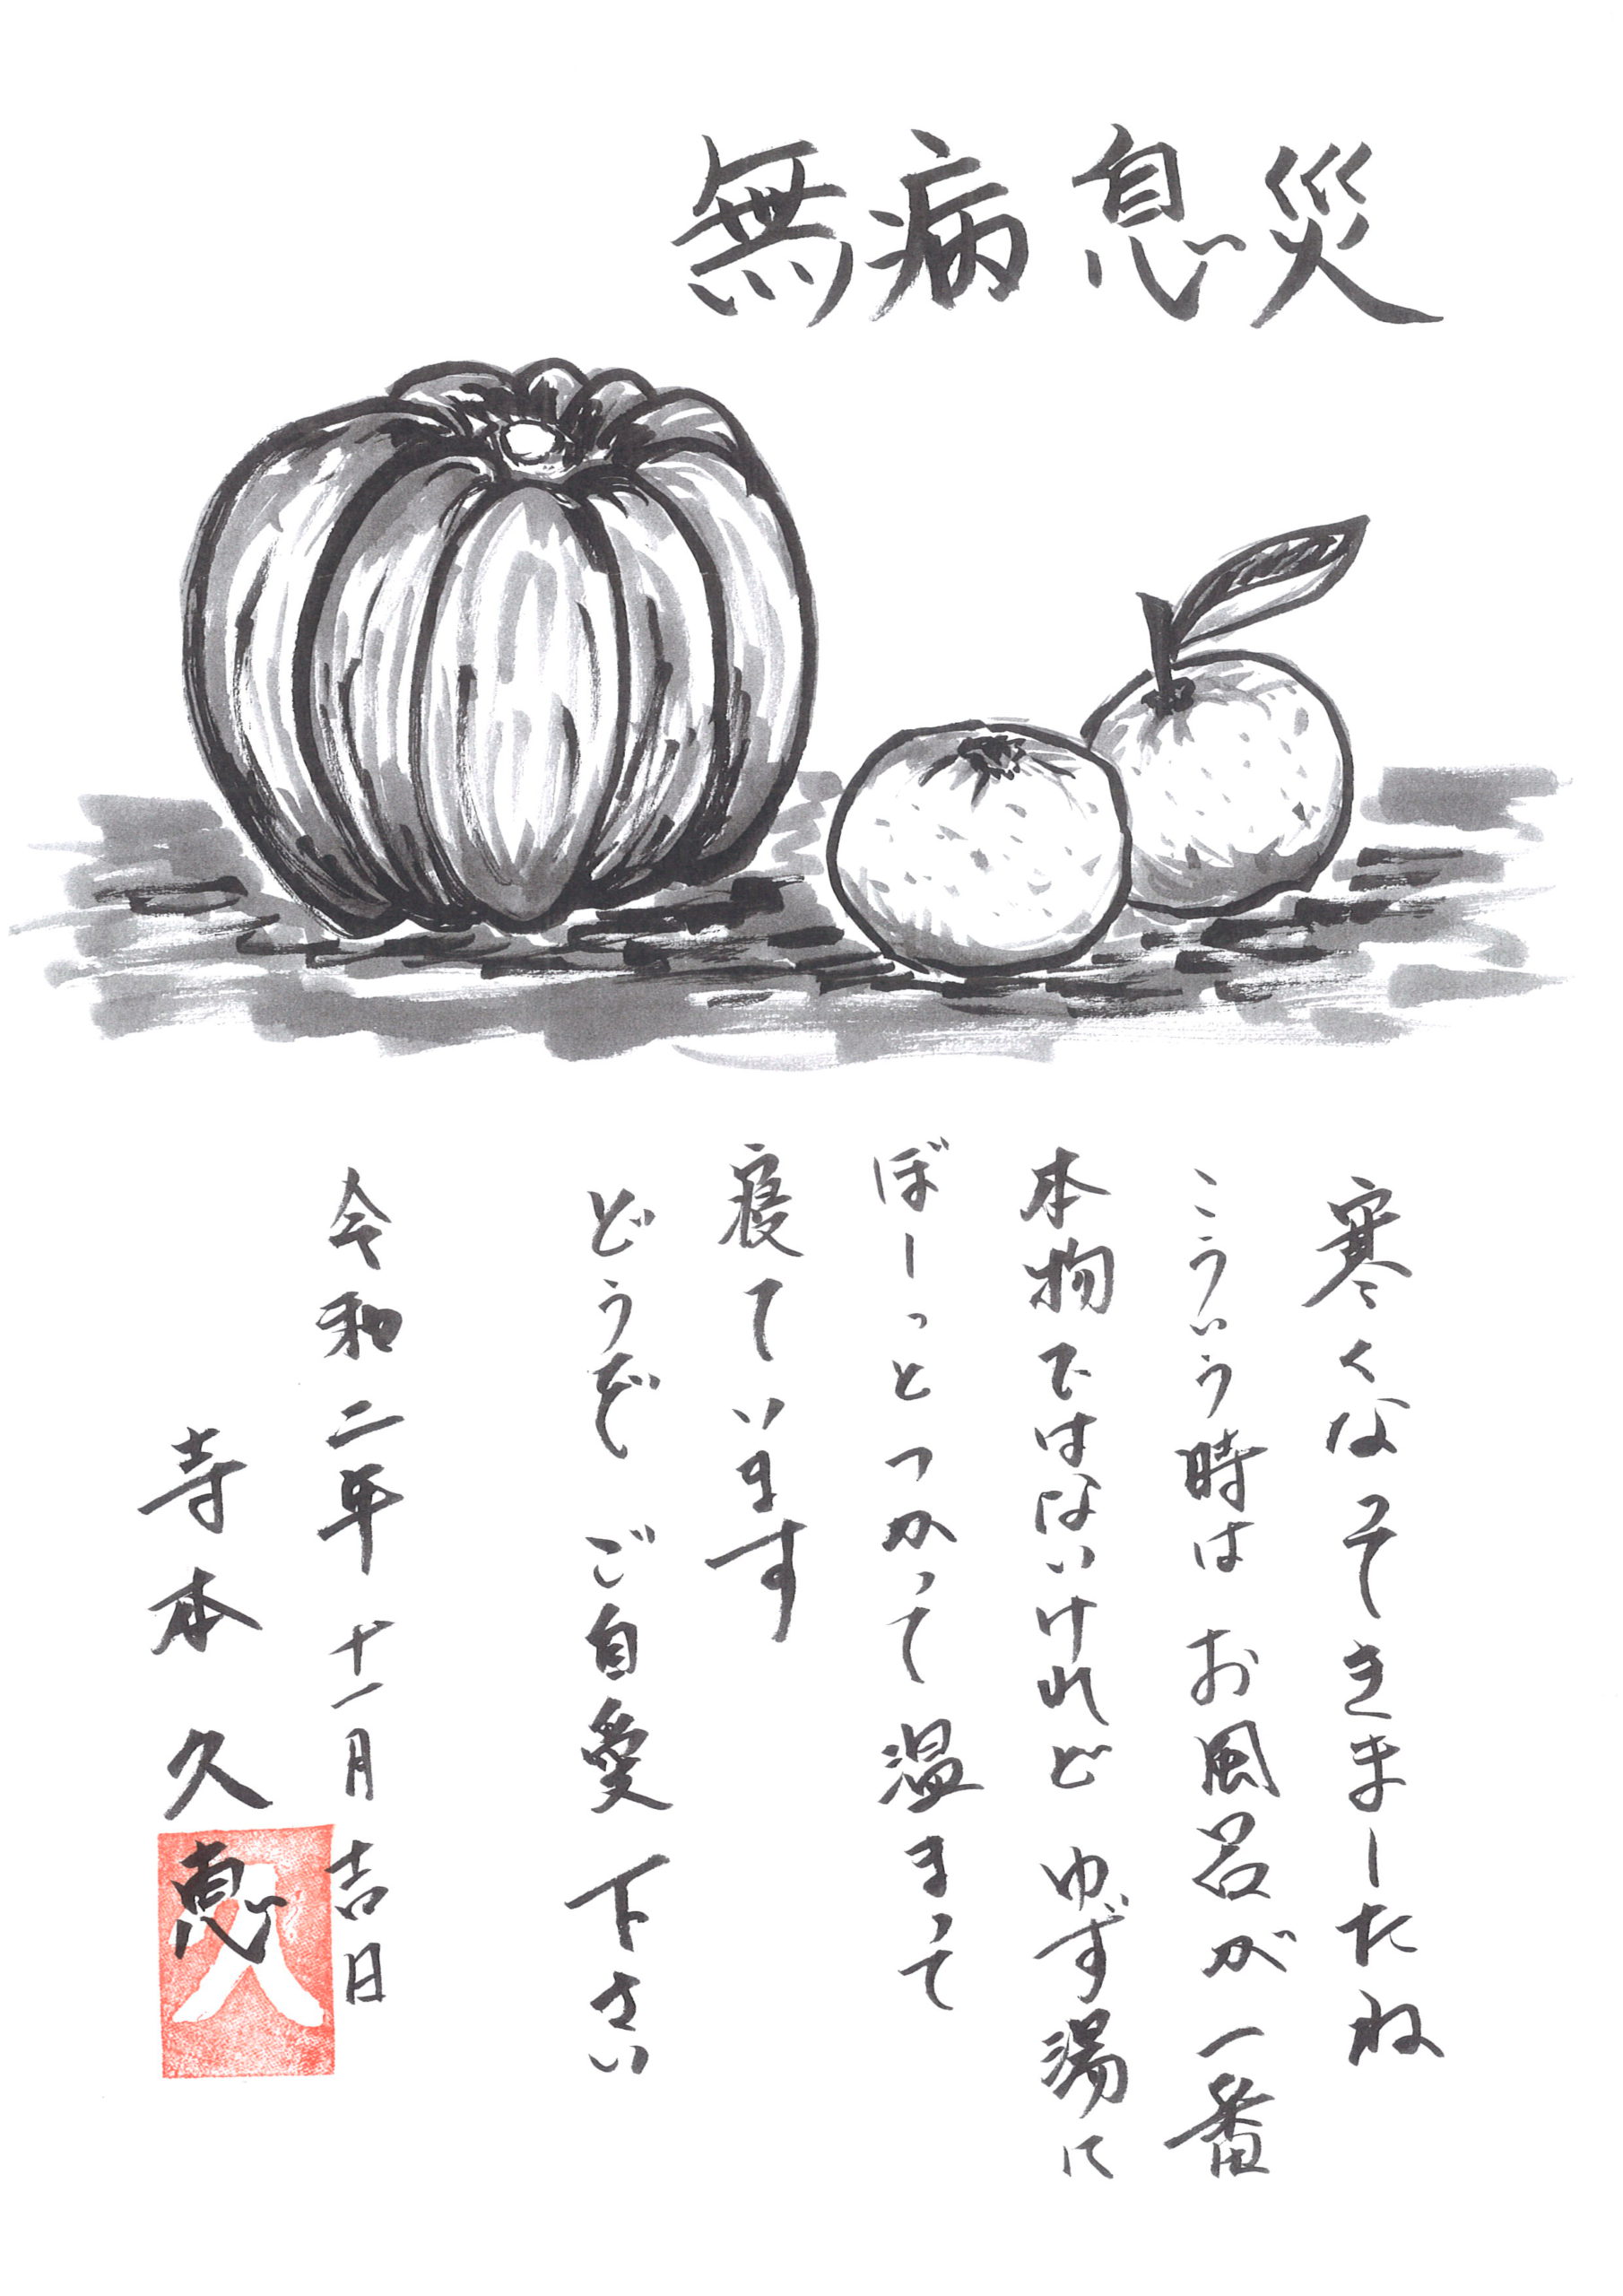 無病息災
寒くなってきましたね
こういう時は お風呂が一番
本物ではないけれど ゆず湯に
ぼーっとつかって温まって
寝ています
どうぞ ご自愛下さい
令和二年 十一月 吉日
寺本 久恵
久